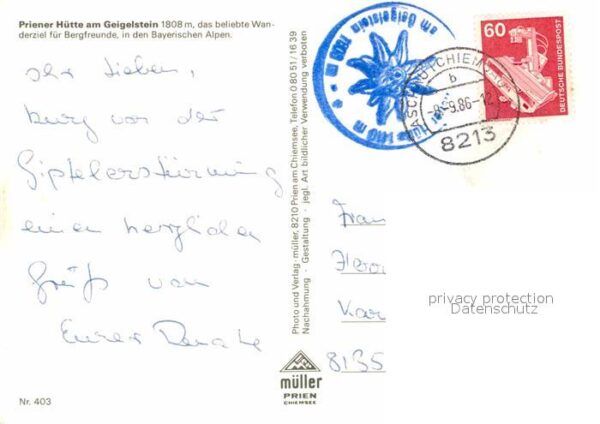 Priener Hütte am Geigelstein 1808 m, das beliebte Wan-
derziel für Bergfreunde, in den Bayerischen Alpen.
Ihr Lieben,
kurz vor der
Gipfelerstürmung
einen herzlichen
Gruß von
Eurer Renate
Nr. 403
Photo und Verlag · müller, 8210 Prien am Chiemsee, Telefon 0 80 51 / 16 39
Nachahmung · Gestaltung · jegl. Art bildlicher Verwendung verboten
müller
PRIEN
CHIEMSEE
am Geigelstein 1808 m
60
DEUTSCHE BUNDESPOST
ASCHAU I CHIEMGAU
b
9.86-12
8213
Frau
Herr
Kar
8135
privacy protection
Datenschutz